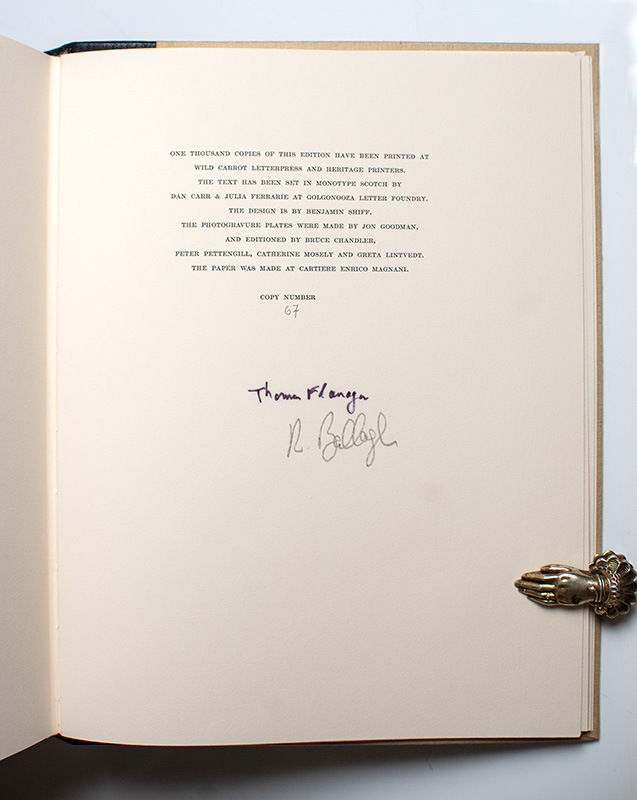 ONE THOUSAND COPIES OF THIS EDITION HAVE BEEN PRINTED AT
WILD CARROT LETTERPRESS AND HERITAGE PRINTERS.
THE TEXT HAS BEEN SET IN MONOTYPE SCOTCH BY
DAN CARR & JULIA FERRARIE AT GOLGONOOZA LETTER FOUNDRY.
THE DESIGN IS BY BENJAMIN SHIFF.
THE PHOTOGRAVURE PLATES WERE MADE BY JON GOODMAN,
AND EDITIONED BY BRUCE CHANDLER,
PETER PETTENGILL, CATHERINE MOSELY AND GRETA LINTVEDT.
THE PAPER WAS MADE AT CARTIERE ENRICO MAGNANI.
COPY NUMBER
67
Thomas Flanagan
R. Ballagh